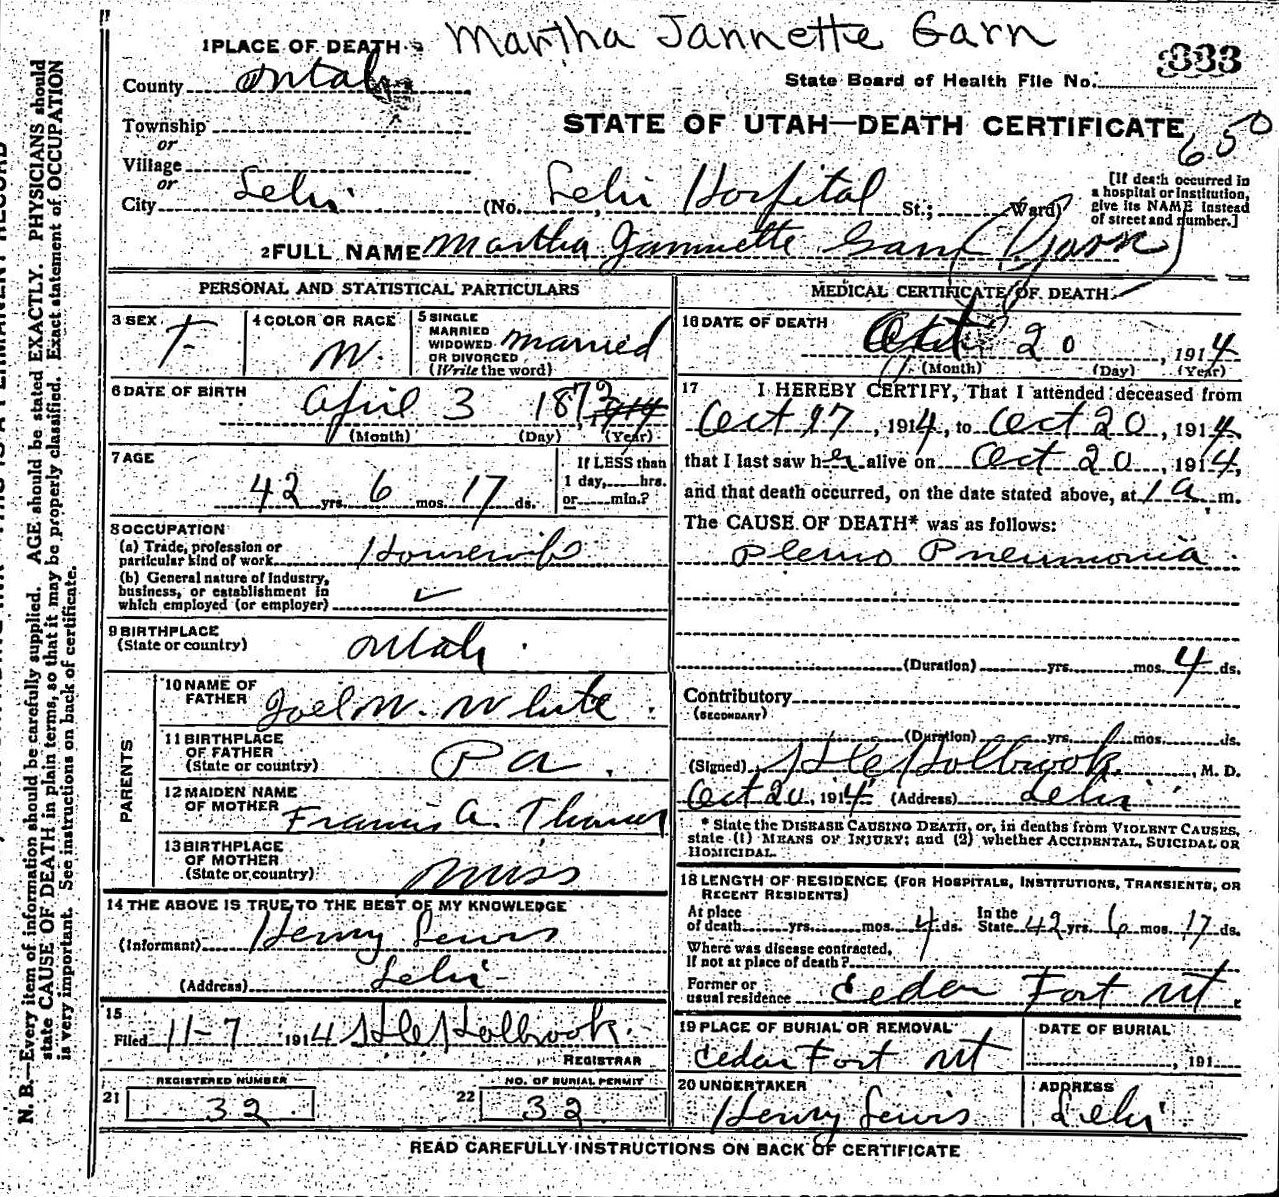 Martha Jannette Garn
1 PLACE OF DEATH
333
County Utah
State Board of Health File No.
Township
or
STATE OF UTAH—DEATH CERTIFICATE
650
Village
or
City Lehi (No. Lehi Hospital St.; Ward)
[If death occurred in
a hospital or institution,
give its NAME instead
of street and number.]
2 FULL NAME Martha Jannette Garn (Garn)
PERSONAL AND STATISTICAL PARTICULARS
3 SEX F
4 COLOR OR RACE W.
5 SINGLE
MARRIED
WIDOWED
OR DIVORCED
(Write the word)
married
6 DATE OF BIRTH
April 3 1872
(Month) (Day) (Year)
7 AGE
42 yrs. 6 mos. 17 ds.
If LESS than
1 day, hrs.
or min.?
8 OCCUPATION
(a) Trade, profession or
particular kind of work Housewife
(b) General nature of industry,
business, or establishment in
which employed (or employer)
9 BIRTHPLACE
(State or country) Utah
PARENTS
10 NAME OF
FATHER Joel W. White
11 BIRTHPLACE
OF FATHER
(State or country) Pa.
12 MAIDEN NAME
OF MOTHER Francis A. Thomas
13 BIRTHPLACE
OF MOTHER
(State or country) Miss
14 THE ABOVE IS TRUE TO THE BEST OF MY KNOWLEDGE
(Informant) Henry Lewis
(Address) Lehi
15
Filed 11-7 1914 Holbrook
REGISTRAR
REGISTERED NUMBER
21 32
NO. OF BURIAL PERMIT
22 32
MEDICAL CERTIFICATE OF DEATH
16 DATE OF DEATH
20, 1914
(Month) (Day) (Year)
17 I HEREBY CERTIFY, That I attended deceased from
Oct 17, 1914, to Oct 20, 1914,
that I last saw her alive on Oct 20, 1914,
and that death occurred, on the date stated above, at 1 a m.
The CAUSE OF DEATH* was as follows:
Pleuro Pneumonia.
(Duration) yrs. mos. 4 ds.
Contributory
(SECONDARY)
(Duration) yrs. mos. ds.
(Signed) Holbrook, M. D.
Oct 20, 1914 (Address) Lehi
* State the DISEASE CAUSING DEATH, or, in deaths from VIOLENT CAUSES,
state (1) MEANS OF INJURY; and (2) whether ACCIDENTAL, SUICIDAL OR
HOMICIDAL.
18 LENGTH OF RESIDENCE (FOR HOSPITALS, INSTITUTIONS, TRANSIENTS, OR
RECENT RESIDENTS)
At place
of death yrs. mos. 4 ds. In the
State 42 yrs. 6 mos. 17 ds.
Where was disease contracted,
If not at place of death?
Former or
usual residence Cedar Fort Ut.
19 PLACE OF BURIAL OR REMOVAL
Cedar Fort Ut
DATE OF BURIAL
, 191
20 UNDERTAKER
Henry Lewis
ADDRESS
Lehi
READ CAREFULLY INSTRUCTIONS ON BACK OF CERTIFICATE
N. B.—Every item of information should be carefully supplied. AGE should be stated EXACTLY. PHYSICIANS should
state CAUSE OF DEATH in plain terms, so that it may be properly classified. Exact statement of OCCUPATION
is very important. See instructions on back of certificate.